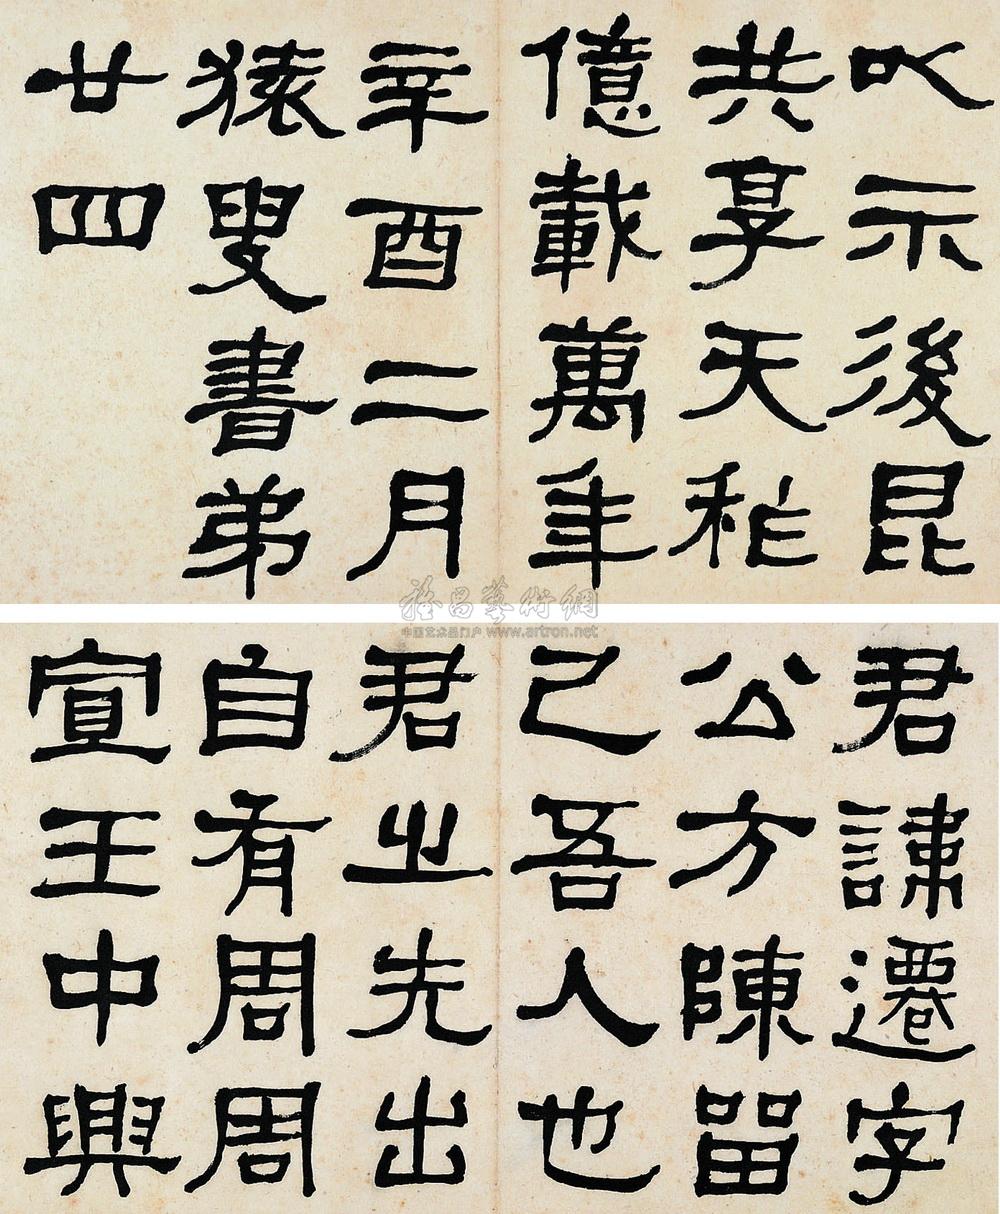 以示後昆
共享天祚
億載萬年
辛酉二月
猿叟書弟
廿四
雅昌藝術網
中国艺术品门户 www.artron.net
君諱遷字
公方陳留
己吾人也
君之先出
自有周周
宣王中興